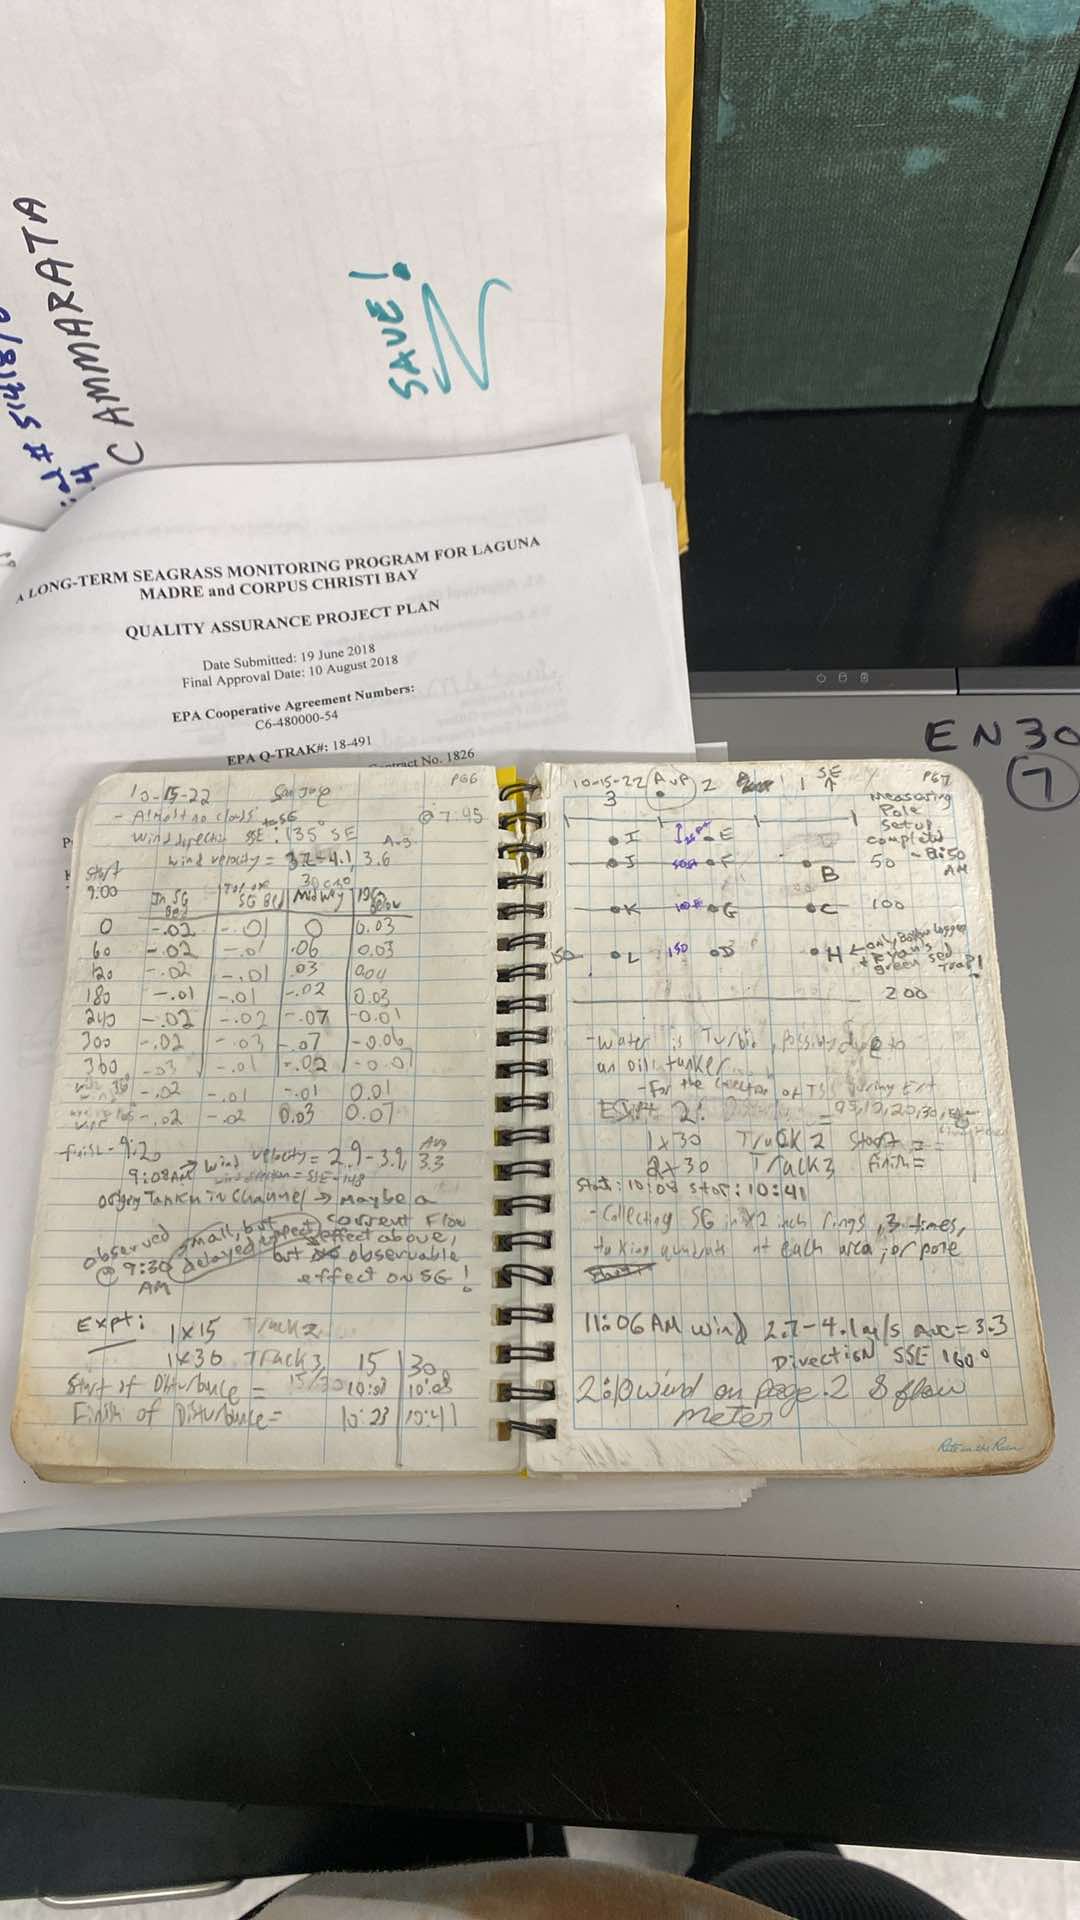 # 51418
CAMMARATA
SAVE!
A LONG-TERM SEAGRASS MONITORING PROGRAM FOR LAGUNA
MADRE and CORPUS CHRISTI BAY
QUALITY ASSURANCE PROJECT PLAN
Date Submitted: 19 June 2018
Final Approval Date: 10 August 2018
EPA Cooperative Agreement Numbers:
C6-480000-54
EPA Q-TRAK#: 18-491
Contract No. 1826
EN30
7
10-15-22 San Jose PG6
- Almost no clouds @ 7:45
Wind direction SSE: 135° SE
wind velocity = 3.2-4.1, 3.6
Start
9:00 In SG Bed Top of SG Bed Midway Below
0 -.02 -.01 0 0.03
60 -.02 -.01 .06 0.03
120 -.02 -.01 .03 0.04
180 -.01 -.01 -.02 0.03
240 -.02 -.02 -.07 -0.01
300 -.02 -.03 -.07 -0.06
360 -.03 -.01 -.02 -0.01
-.02 -.01 -.01 0.01
-.02 -.02 0.03 0.07
finish - 9:20
9:08AM → wind velocity = 2.9-3.9, Avg 3.3
wind direction = SSE-148
Tanker in Channel → maybe a
observed small, but current flow
delayed effect effect above,
@ 9:30 AM but no observable
effect on SG!
Expt: 1x15 Track 2
1x30 Track 3 15 30
Start of Disturbance = 10:08 10:08
Finish of Disturbance = 10:23 10:41
10-15-22 PG7
3 2 1 SE
Measuring
Pole
setup
completed
- 8:50
AM
I E
J F B 50
K G C 100
150 L 150 D H ← only
green sed Trap!
200
- Water is Turbid, possibly due to
an oil tanker
- For the collection of TSS during Ext
2:
1x30 Track 2 Start =
2x30 Track 3 Finish =
start: 10:08 stop: 10:41
- Collecting SG in 12 inch rings, 3 times,
taking quadrats at each area, or pore
11:06 AM wind 2.7-4.1 m/s ave = 3.3
Direction SSE 160°
2:10 wind on page 2 & flow
meter
Rite in the Rain